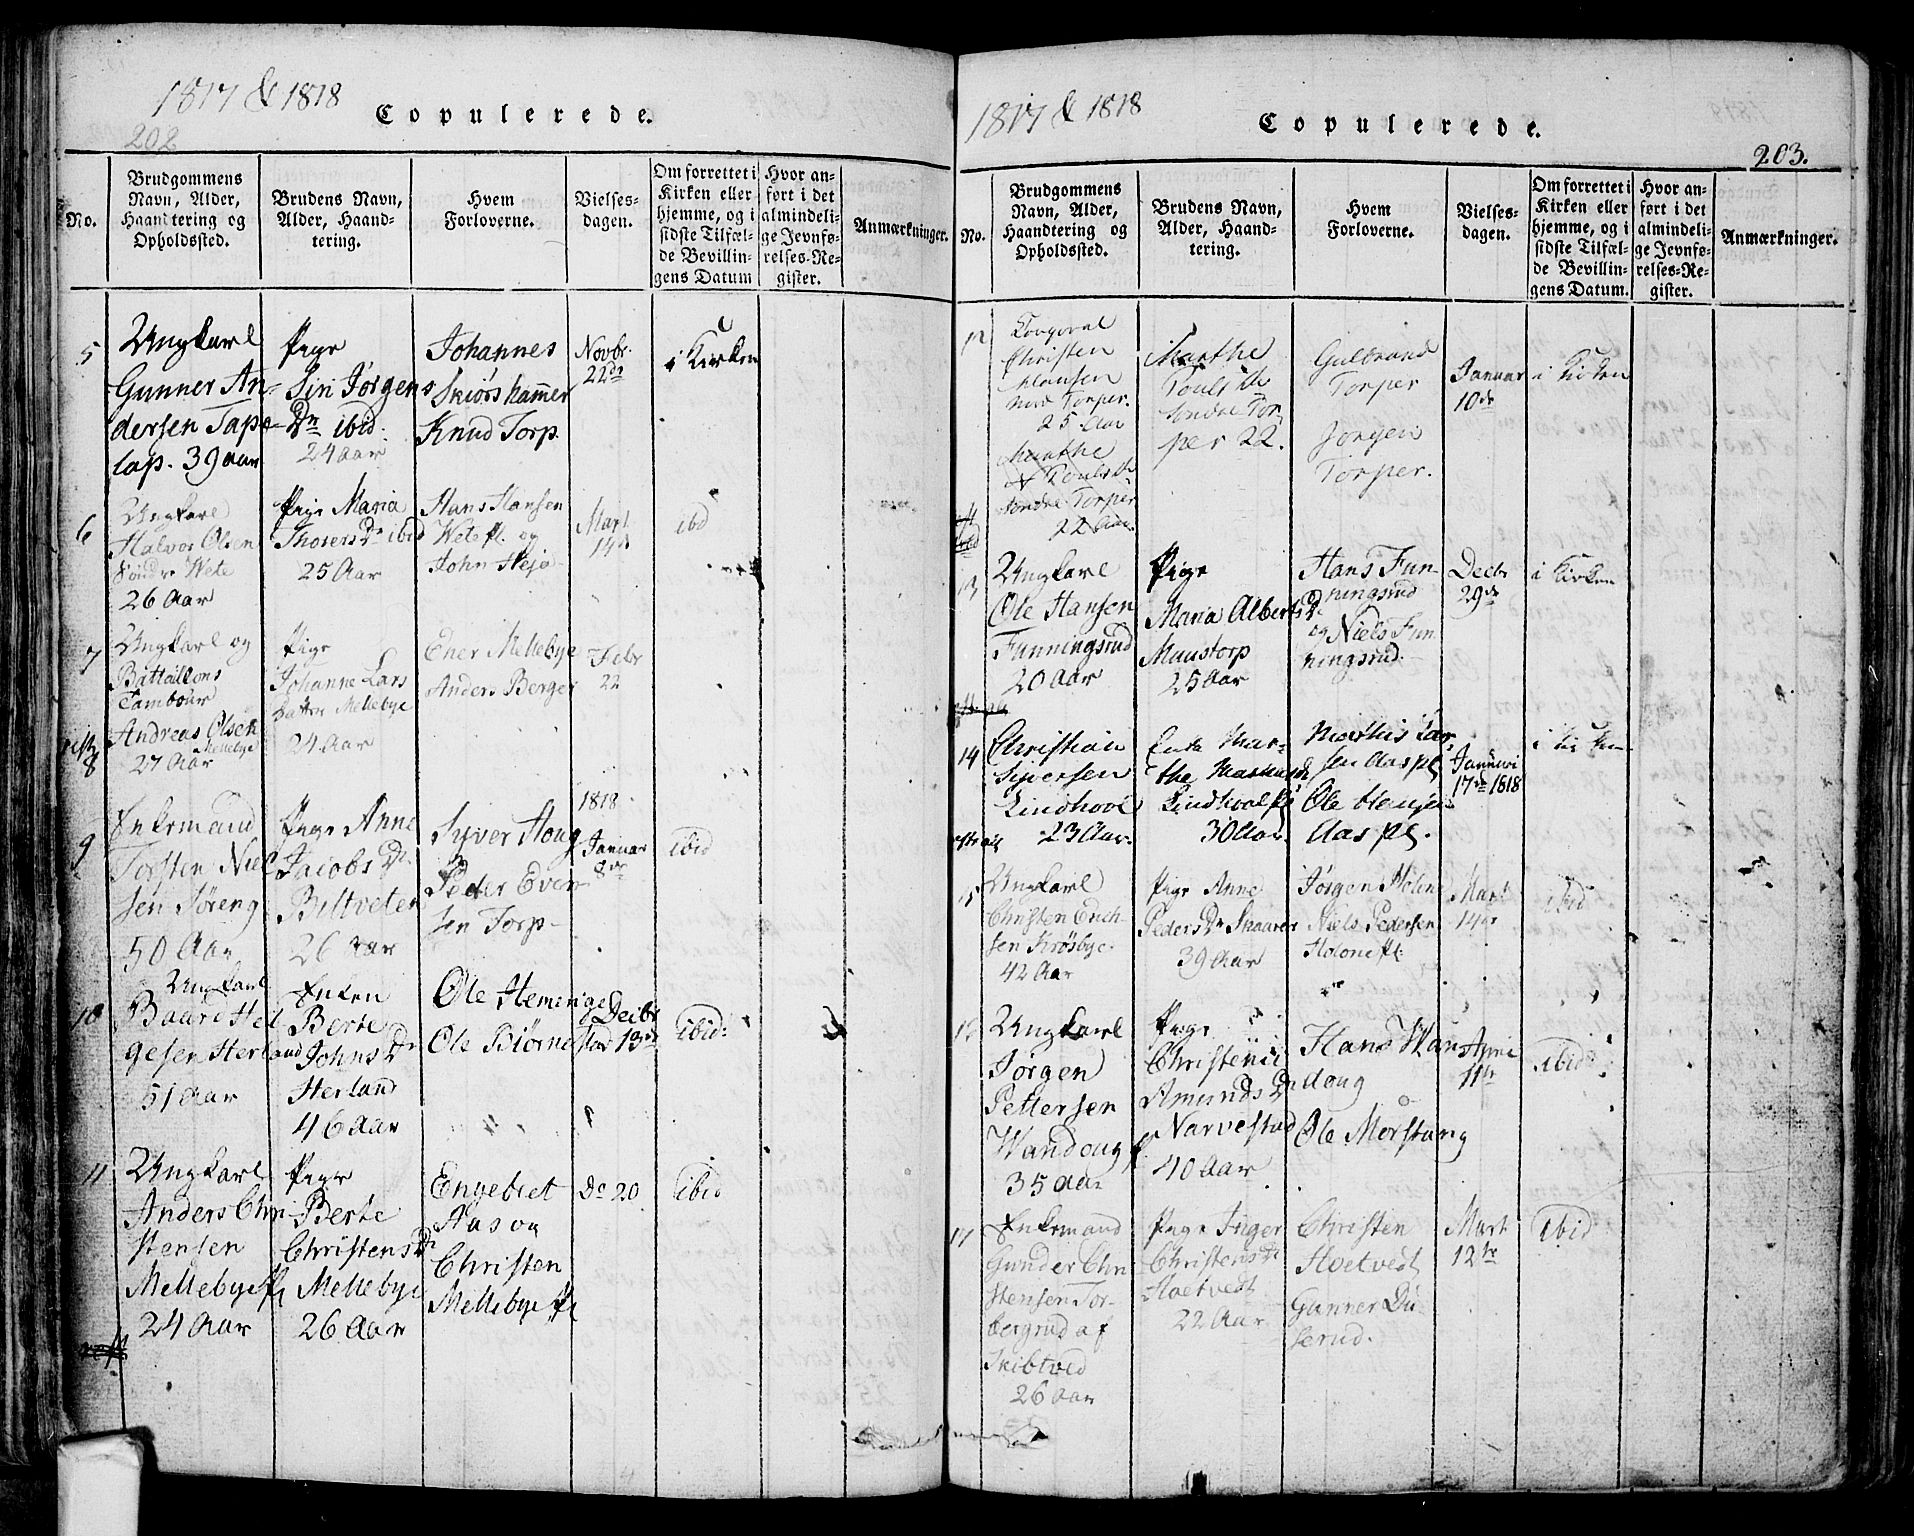 1817 & 1818
Copulerede.
202
No.
Brudgommens Navn, Alder, Haandtering og Opholdssted.
Brudens Navn, Alder, Haandtering.
Hvem Forloverne.
Vielsesdagen.
Om forrettet i Kirken eller hjemme, og i sidste Tilfælde Bevillingens Datum
Hvor anført i det almindelige Jevnførelses-Register.
Anmærkninger.
5
Ungkarl
Gunner An-
dersen Tapa-
lap. 39 aar
Pige
Siri Jørgens
Dr ibid.
24 aar
Johannes
Skiørshammer
Knud Torp.
Novbr.
22de
i Kirken
6
Ungkarl
Halvor Olsen
Søndre Wete
26 Aar
Pige Maria
Thosters Dr ibid
25 Aar
Hans Hansen
Wete pl. og
John Hejo
Mart
14de
ibid
7
Ungkarl og
Battaillons
Tambour
Andreas Olsen
Mellebye
27 Aar
Pige
Johanne Lars
datter Mellebye
24 Aar
Ener Mellebye
Anders Berger
Febr
22
8
9
Enkemand
Torsten Niel
sen Søreng
50 Aar
Pige Anne
Jacobs Dr
Biltveter
26 Aar
Syver Houg
Peder Even
sen Torp
1818
Januar
8de
ibid
10
Ungkarl
Baard Hel
gesen Herland
51 Aar
Enken
Berte
Johns Dr
Herland
46 Aar
Ole Heminge
Ole Biørnestad
Decbr
13de
ibid.
11
Ungkarl
Anders Chri
stensen
Mellebye pl
24 Aar
Pige
Berte
Christens Dr
Mellebye
26 Aar
Engebret
Aas og
Christen
Mellebye pl
Do 20
ibid
1817 & 1818
Copulerede.
203.
No.
Brudgommens Navn, Alder, Haandtering og Opholdssted.
Brudens Navn, Alder, Haandtering.
Hvem Forloverne.
Vielsesdagen.
Om forrettet i Kirken eller hjemme, og i sidste Tilfælde Bevillingens Datum.
Hvor anført i det almindelige Jevnførelses-Register.
Anmærkninger.
12
Christen
Clausen
nord Torper.
25 Aar
Marthe
Pouls Dr
Søndre Torper
22 Aar.
Marthe
Pouls Dr
Søndre Tor
per 22.
Gulbrand
Torper
Jørgen
Torper.
Januar
10de
i Kirken
13
Ungkarl
Ole Hansen
Funningsrud
20 Aar
Pige
Maria Alberts Dr
Maustorp
25 Aar
Hans Fun-
ningsrud
og Niels Fun
ningsrud.
Decbr
29de
i Kirken
14
Christian
Syversen
Lindhovl
23 Aar.
Enke Mar-
the
Lindhval pl
30 Aar
Mathis Lar
sen Aas pl
Ole Hansen
Aas pl.
Januari
17de 1818
i Kirken
15
Ungkarl
Christen Erich-
sen Krøsbye.
42 Aar
Pige Anne
Peders Dr Skaarer
39 Aar
Jørgen Holene
Niels Pedersen
Holene pl.
Mart
14de
ibid
Ungkarl
Jørgen
Pettersen
Wandoug pl
35 Aar
Pige
Christense
Amunds Dr
Narvestad
40 Aar
Hans Wan
doug
Ole Morstang
April
11te
ibid
17
Enkemand
Gunder Chri
stensen Tor-
bergrud af
Skibtved
26 Aar
Pige Inger
Christens Dr
Hoetvedt
22 Aar
Christen
Hoetvedt
Gunner Du
serud.
Mart
12te
ibid